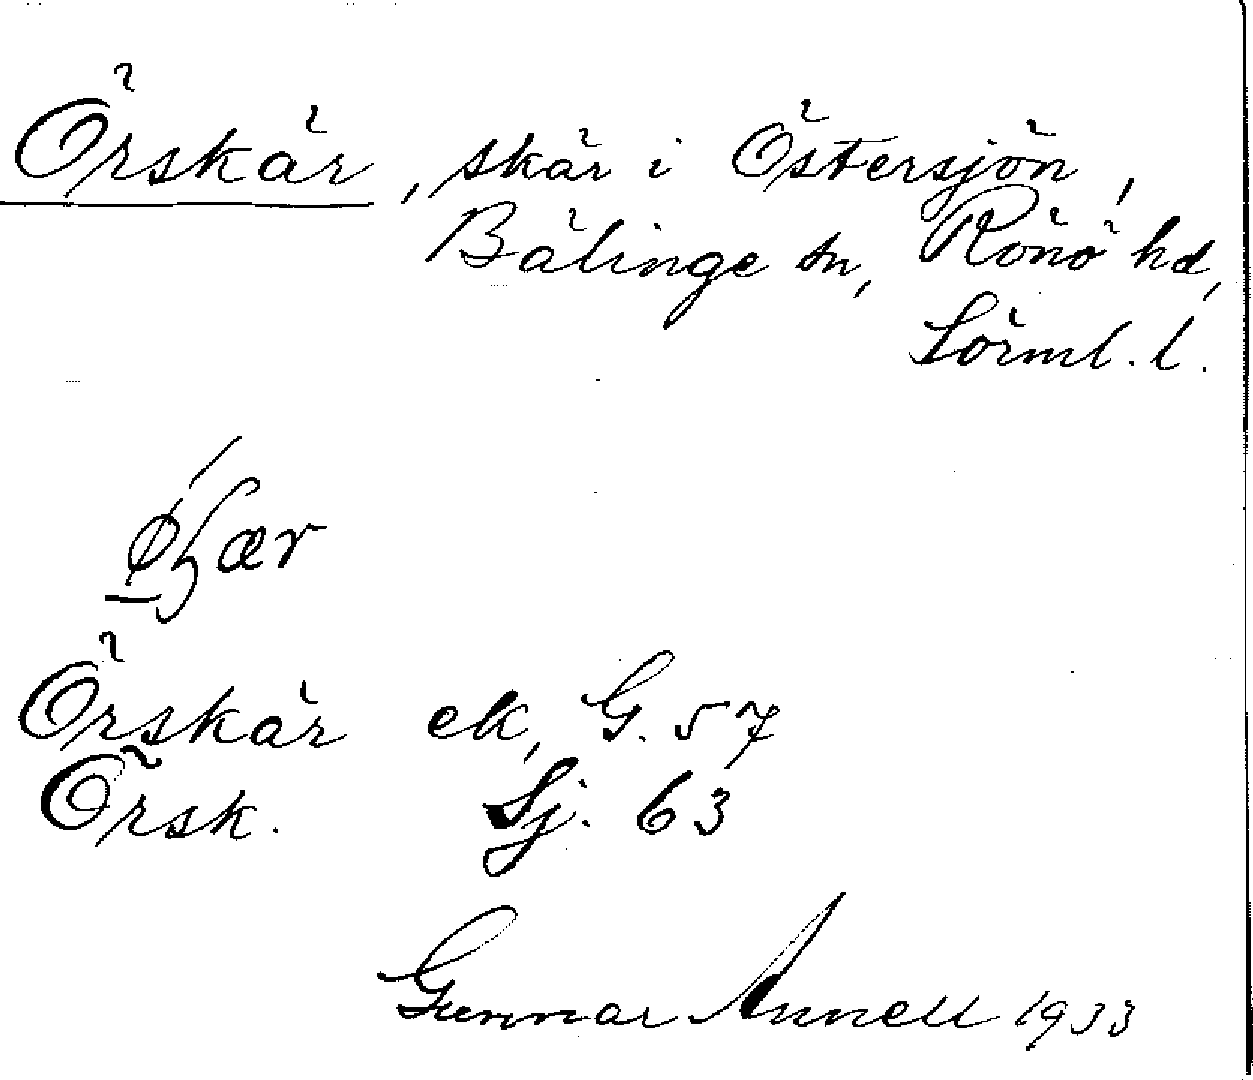 Örskär, skär i Östersjön,
Bälinge sn, Rönö hd,
Sörml. l.
Örskär ek, G. 57
Örsk. Sj. 63
Gunnar Annell 1933